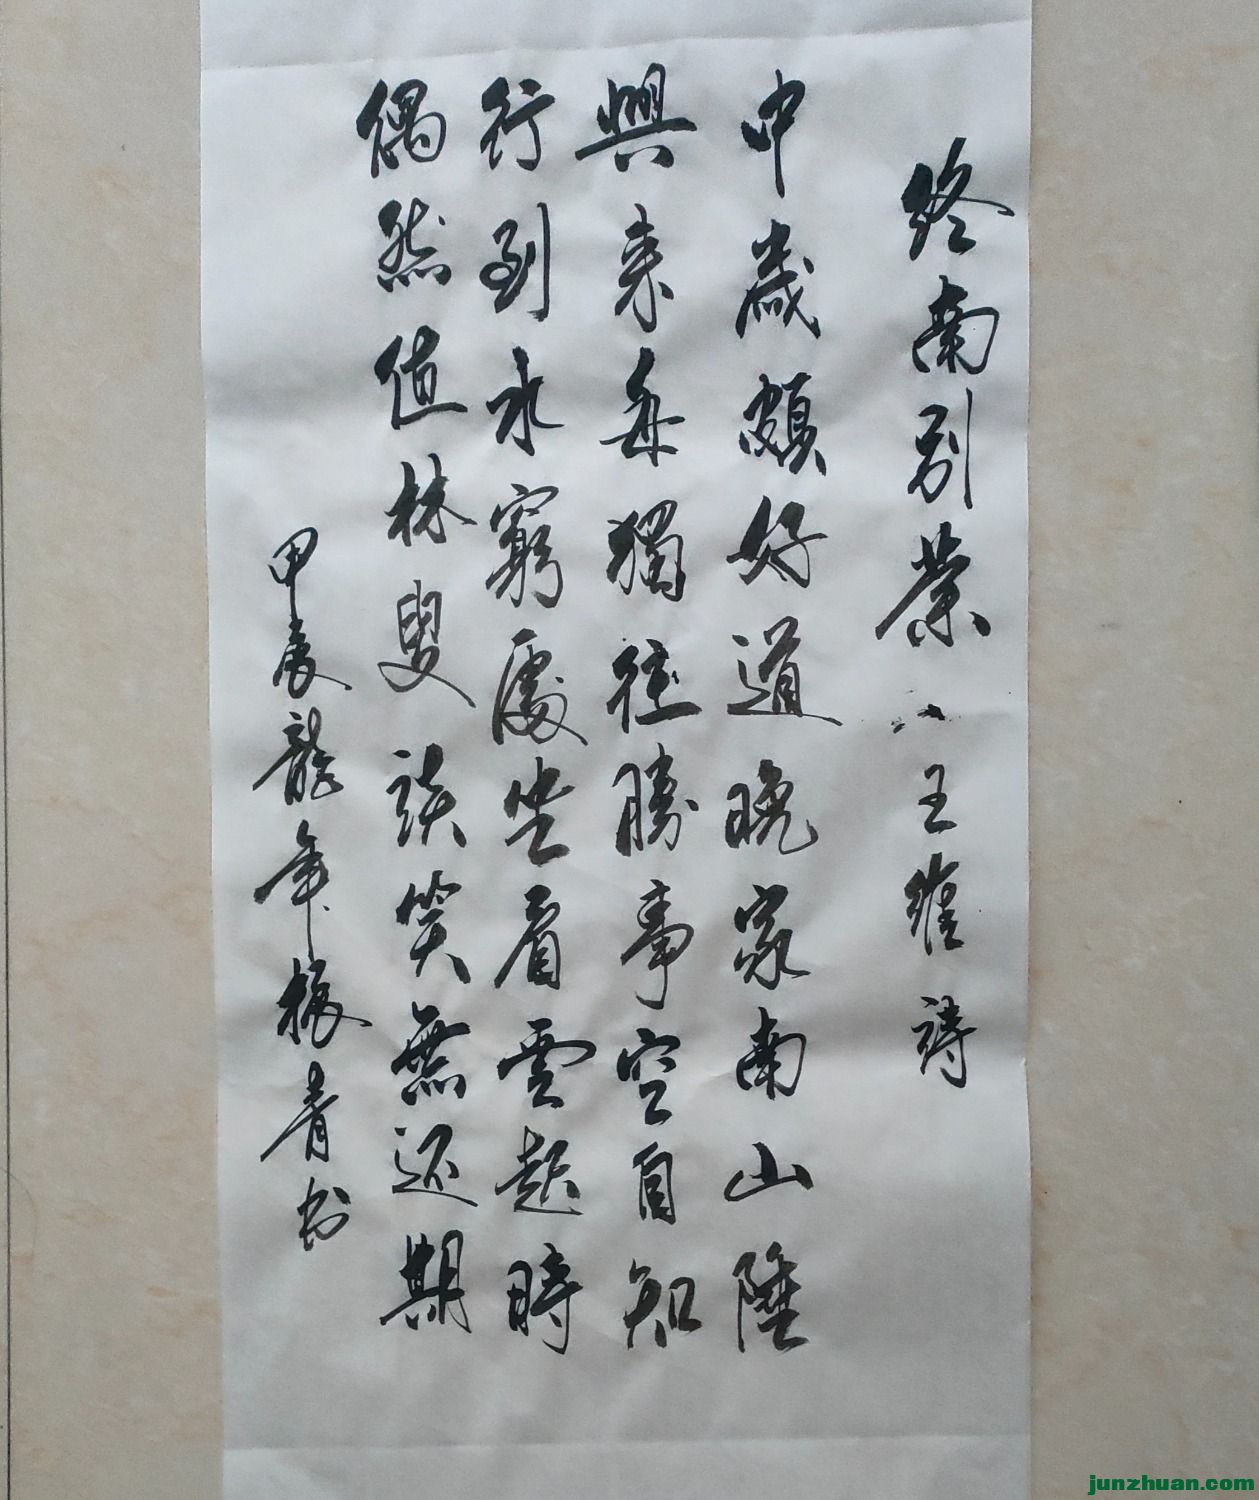 终南别業 王維詩
中歲頗好道晚家南山陲
興来每獨往勝事空自知
行到水窮處坐看雲起時
偶然值林叟談笑無还期
甲辰龍年梅青书
junzhuan.com